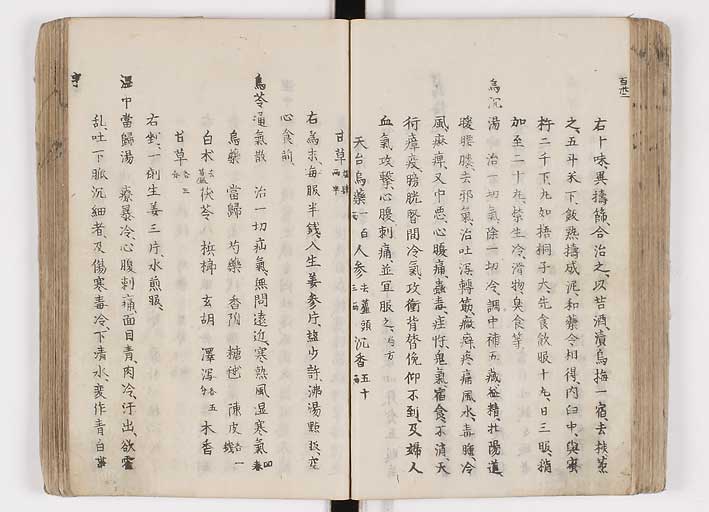 右十味異擣篩合治之以苦酒漬烏梅一宿去核蒸
之五斗米下飯熟擣成泥和藥令相得内臼中與蜜
杵二千下丸如梧桐子大先食飲服十丸日三服稍
加至二十丸禁生冷滑物臭食等
烏沉湯 治一切氣除一切冷調中補五藏益精壯陽道
暖腰膝去邪氣治吐瀉轉筋癥癖疼痛風水毒腫冷
風麻痺又中惡心腹痛蟲毒疰忤鬼氣宿食不消天
行瘴疫膀胱腎間冷氣攻衝背膂俛仰不利及婦人
血氣攻擊心腹刺痛並宜服之
天台烏藥一百兩 人參去蘆頭三兩 沉香五十兩
甘草
右為末每服半錢入生姜三片塩少許沸湯點服空
心食前
烏苓通氣散 治一切疝氣無問遠近寒熱風湿寒氣
烏藥 當歸 芍藥 香附 糖毬 陳皮各一錢
白朮 茯苓 檳榔 玄胡 澤瀉各五 木香
甘草各三
右剉一劑生姜三片水煎服
温中當歸湯 療暴冷心腹刺痛面目青肉冷汗出欲霍
乱吐下脈沉細者及傷寒毒冷下清水変作青白